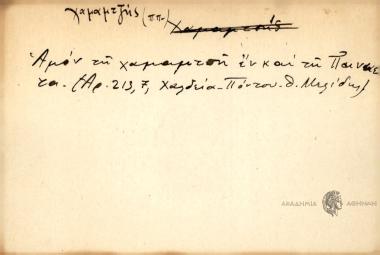 χαμαμτζής (ππ.) Χαμαμτσής
Ἀμόν τῆ χαμαμτσῆ ἔν καὶ τῆ
τα. (Ἀρ. 213, 7, Χαλδεία - Πόντου - Θ. Μελίδης)
ΑΚΑΔΗΜΙΑ ΑΘΗΝΩΝ